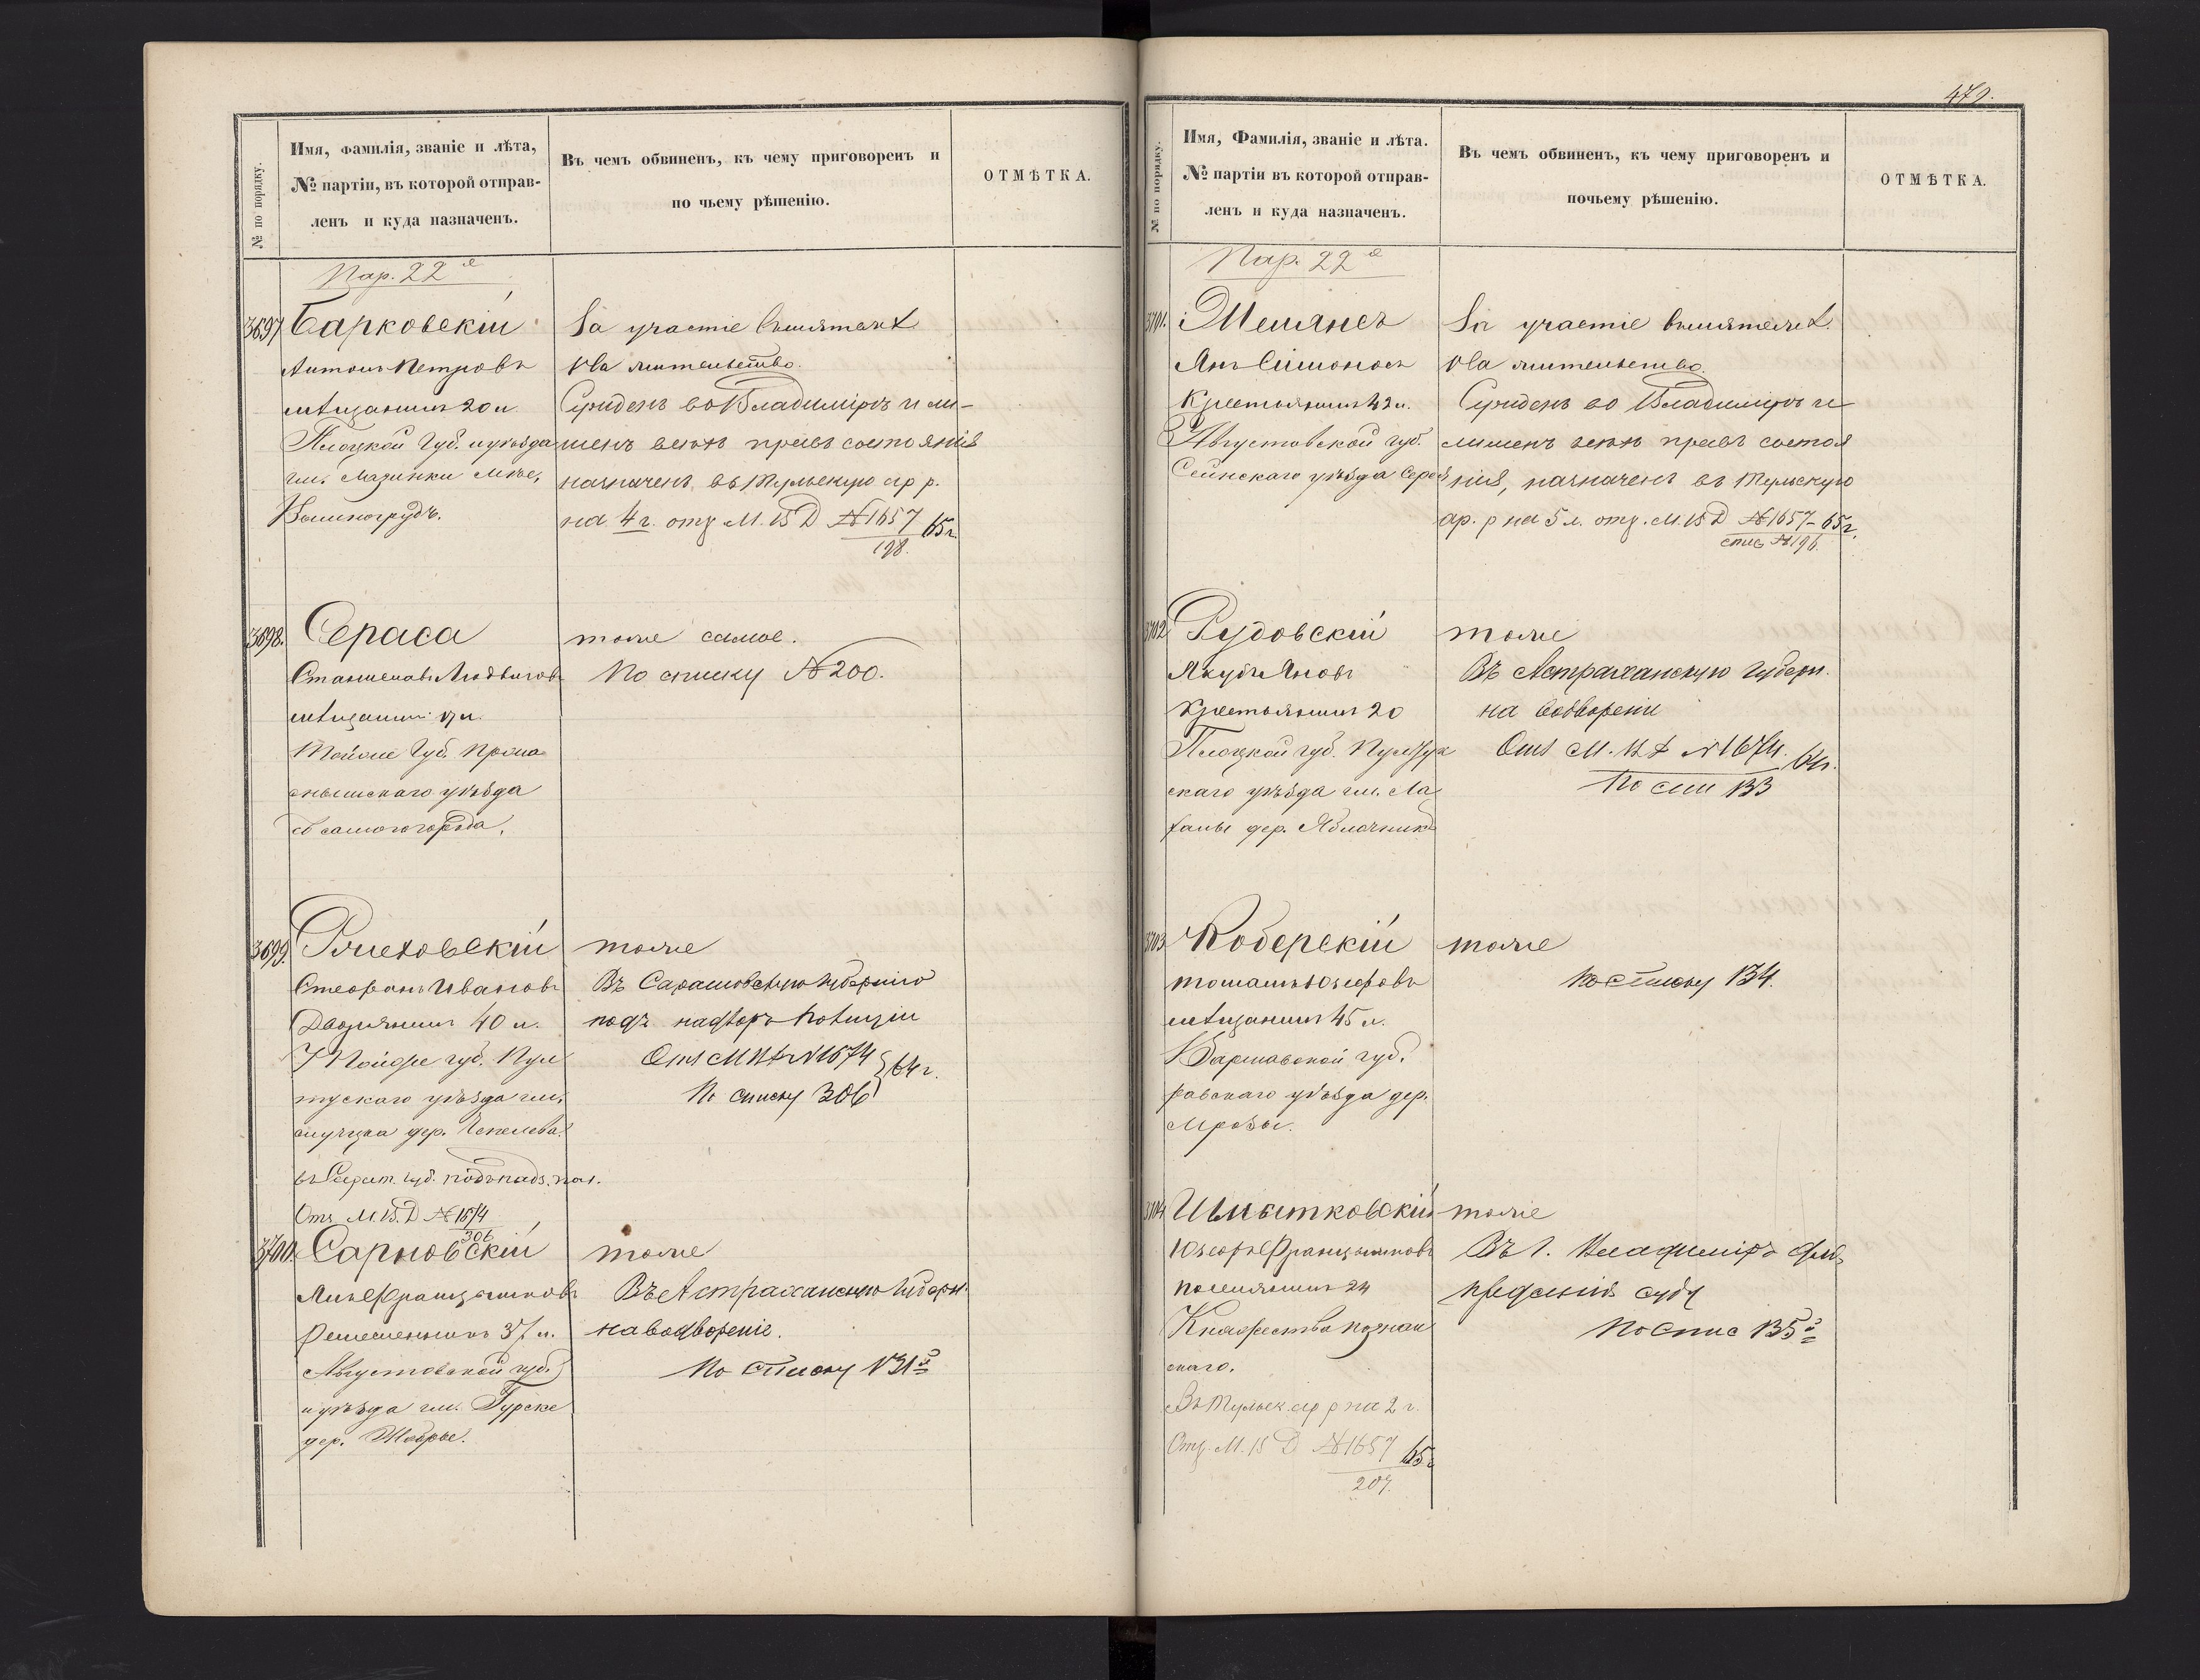 № по порядку.
Имя, фамилія, званіе и лѣта,
№ партіи, въ которой отправ-
ленъ и куда назначенъ.
Въ чемъ обвиненъ, къ чему приговоренъ и
по чьему рѣшенію.
ОТМѢТКА.
Пар. 22я
3697
Барковскій
Антонъ Петровъ
мѣщанинъ 20 л.
Плоцкой Губ. и уѣзда
гм.
За участіе въ мятежѣ
Сужденъ во Владимірѣ и ли-
шенъ всѣхъ правъ состоянія
назначенъ въ Тульскую ар р.
на 4 г. отз М. В Д № 1657 65 г.
198.
3698.
Сераса
Станиславъ Людвиговъ
мѣщанинъ
Тойже Губ. Прас
нышскаго уѣзда
самого города.
тоже самое.
По списку № 200.
3699.
Стефанъ Ивановъ
Дворянинъ 40 л.
Тойже губ. Пул
тускаго уѣзда гм.
дер.
въ Сарат. губ. подъ надз. пол.
Отз. М. В. Д № 1674
306
тоже
Въ Саратовскую Губернію
подъ надзоръ Полиціи
Отз М В Д № 1674
По списку 306 } 64 г.
3700.
Сарновскій
Янъ Францышковъ
ремесленникъ 37 л.
Августовской губ.
и уѣзда гм.
дер.
тоже
Въ Астраханскую Губерн.
на водвореніе.
По списку № 31й
479.
№ по порядку.
Имя, Фамилія, званіе и лѣта.
№ партіи въ которой отправ-
ленъ и куда назначенъ.
Въ чемъ обвиненъ, къ чему приговоренъ и
почьему рѣшенію.
ОТМѢТКА.
Пар. 22я
3701.
Янъ Симоновъ
Крестьянинъ 42 л.
Августовской губ.
Сейнскаго уѣзда
За участіе въ мятежѣ.
Сужденъ во Владимірѣ и
лишенъ всѣхъ правъ состоя
нія, назначенъ въ Тульскую
ар. р на 5 л. отз. М. В Д № 1657-65 г.
спис № 196.
3702
Рудовскій
Якубъ Яновъ
Крестьянинъ 20
Плоцкой губ. Пултус
скаго уѣзда гм.
дер.
тоже
Въ Астраханскую Губерн.
на водвореніе
Отз М. В Д № 1674 64 г.
По спи 133
3703
Коберскій
Томашъ Юзефовъ
мѣщанинъ 45 л.
Варшавской губ.
Равскаго уѣзда дер.
Мрозы.
тоже
По списку 134.
3704
Шматковскій
Юзефъ Францышковъ
24
Княжества Познан
скаго.
Въ Тульск. ар р на 2 г.
Отз. М. В Д № 1657 65 г
207.
тоже
Въ г. Владиміръ для
преданія суду
По спис 135й